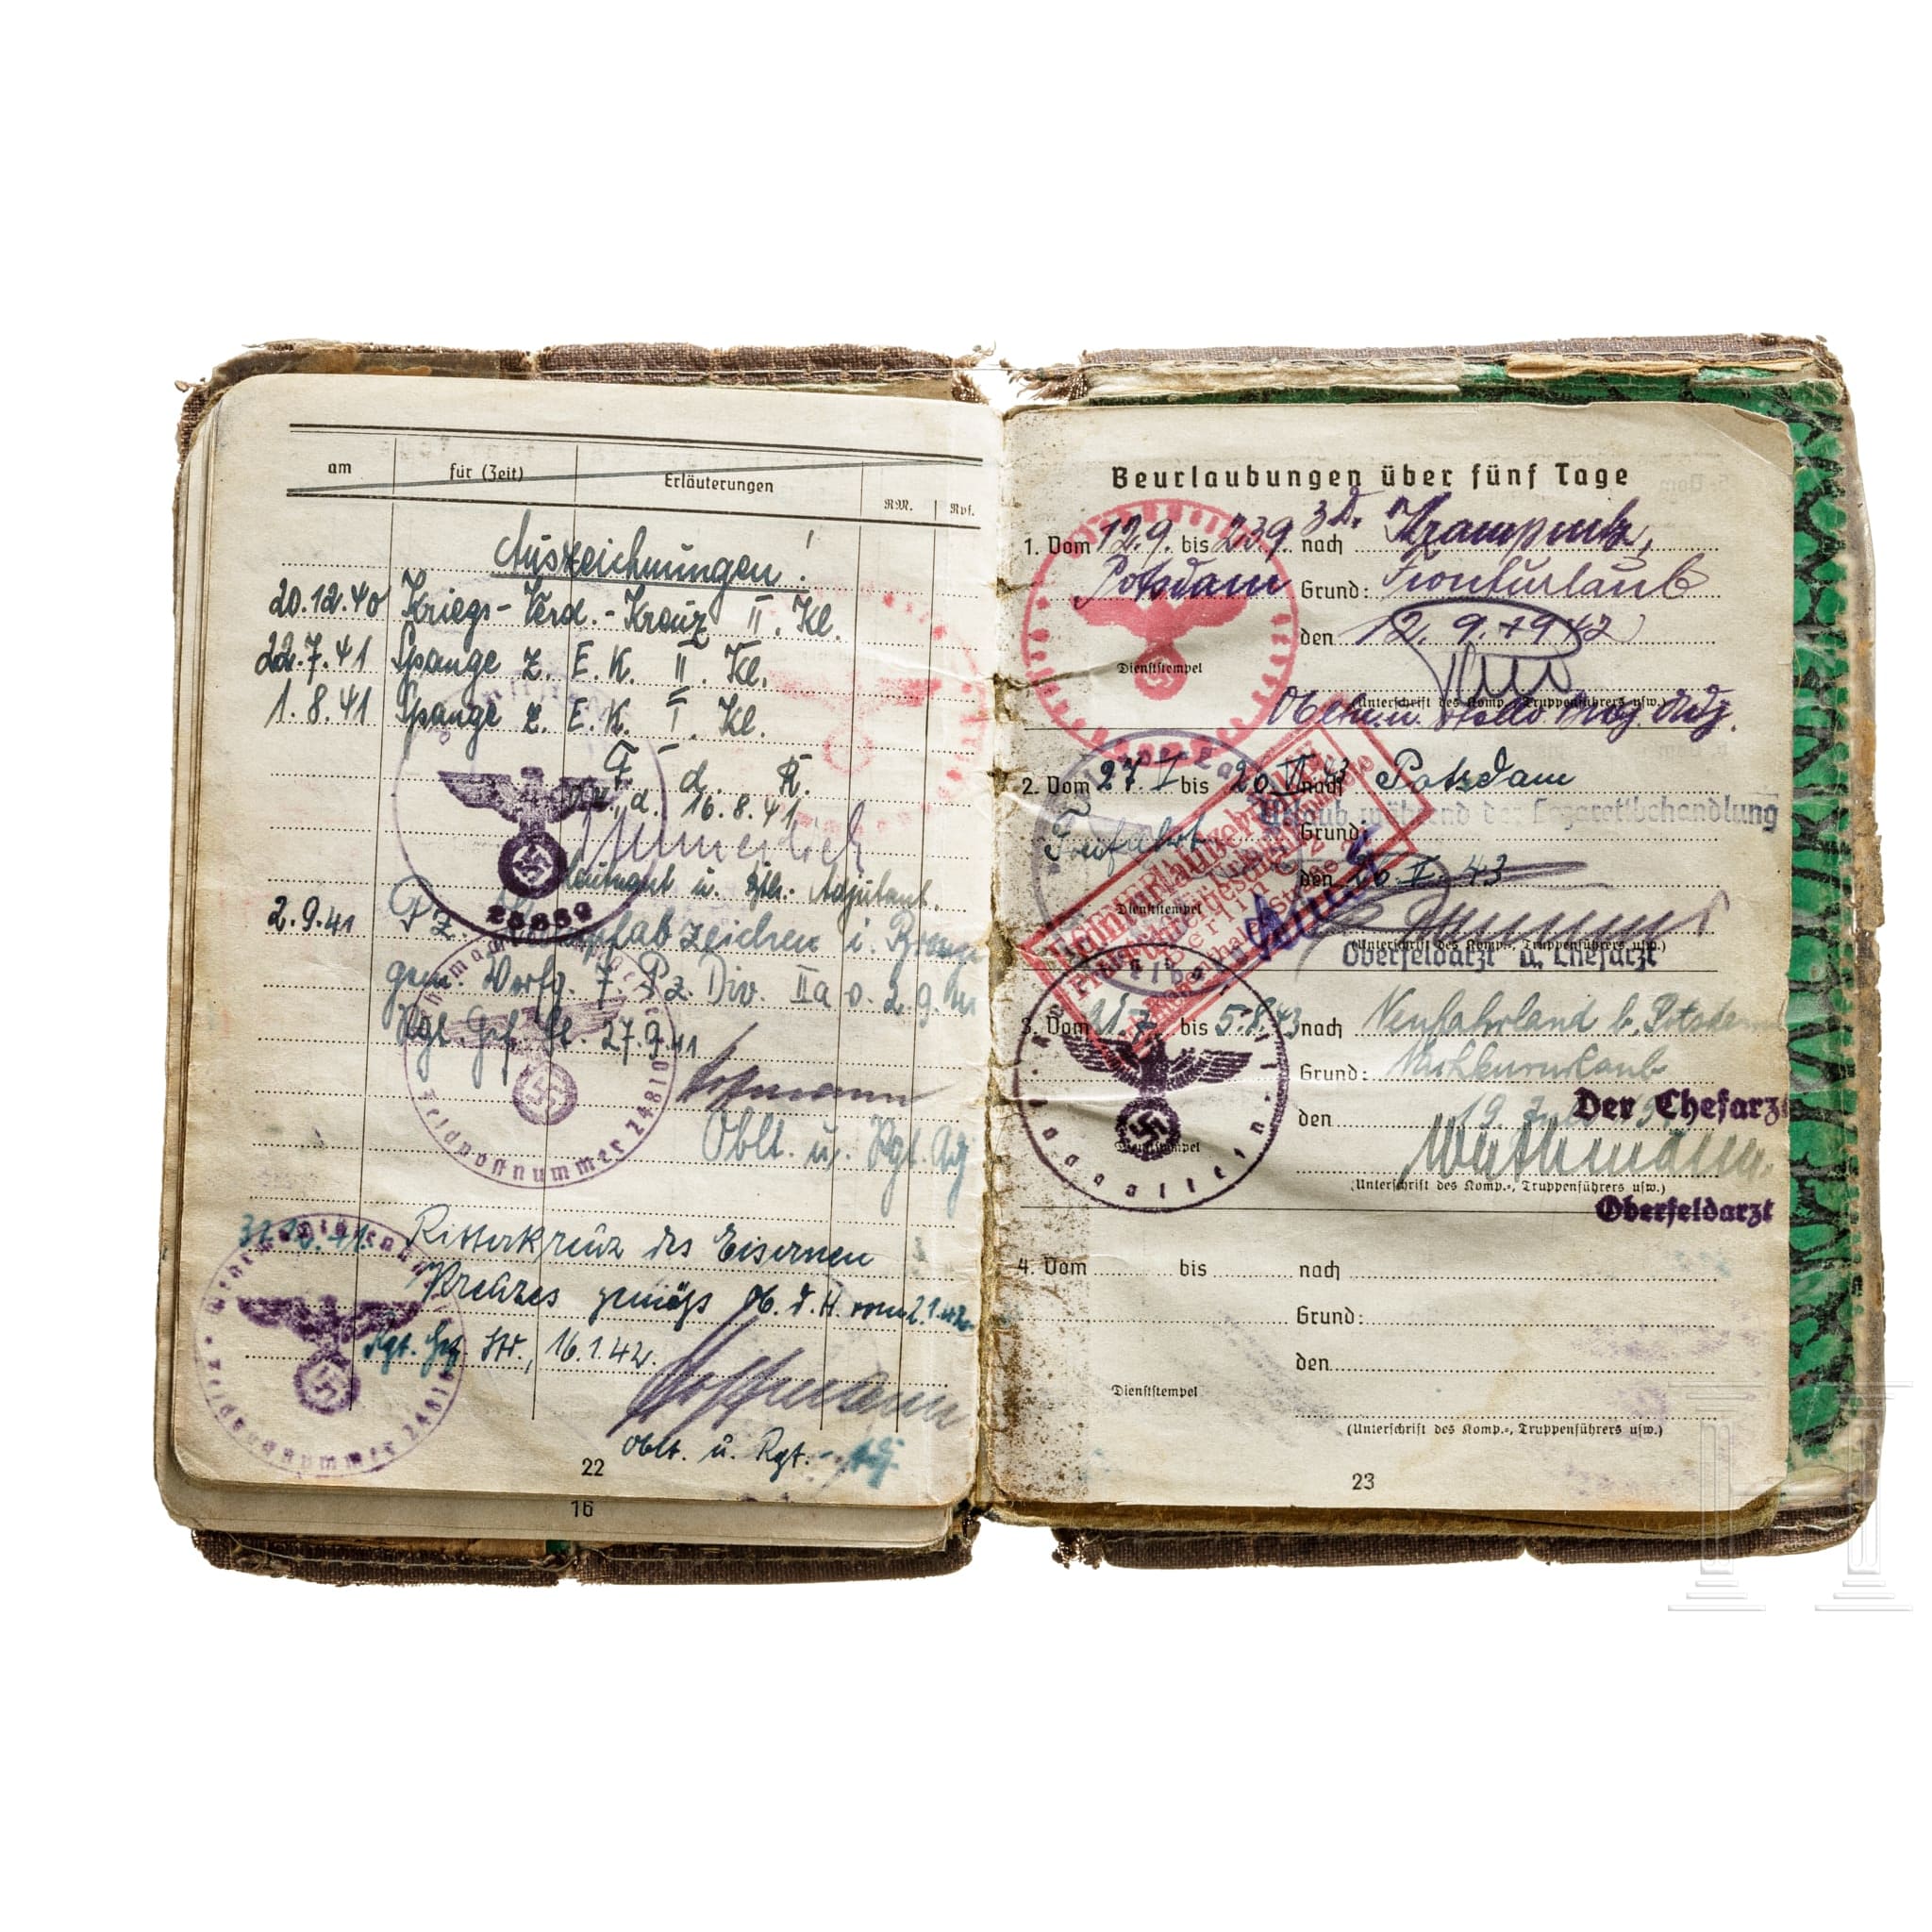 am für (Zeit) Erläuterungen RM. Rpf.
Auszeichnungen!
20.12.40 Kriegs-Verd.-Kreuz II. Kl.
22.7.41 Spange z. E. K. II. Kl.
1.8.41 Spange z. E. K. I. Kl.
F. d. R.
d. 16.8.41
Leutnant u. Adjutant.
25859
2.9.41 Pz. kampfabzeichen i. Bronze
gem. Verfg. 7. Pz. Div. IIa v. 2.9.
Rgt. Gef. St. 27.9.41
Hoffmann
Oblt. u. Rgt. Adj
Feldpostnummer 24810
Ritterkreuz des Eisernen
Kreuzes gemäß Ob. d. H. vom 2.1.42
Rgt. Gef. St., 16.1.42.
Hoffmann
Oblt. u. Rgt. - Adj.
Feldpostnummer 24810
22
16
Beurlaubungen über fünf Tage
1. Vom 12.9. bis 23.9. nach Krampnitz,
Potsdam Grund: Fronturlaub
den 12.9.1942
Dienststempel
(Unterschrift des Komp.-, Truppenführers usw.)
2. Vom 27. V bis 20. VI 43 nach Potsdam
Urlaub während der Lazarettbehandlung
Grund:
den 26. V. 43
Dienststempel
(Unterschrift des Komp.-, Truppenführers usw.)
Oberfeldarzt u. Chefarzt
Berlin
3. Vom 21.7. bis 5.8.43 nach Neufahrland b. Potsdam
Grund: Nachkururlaub
den 19.
Der Chefarzt
Dienststempel
(Unterschrift des Komp.-, Truppenführers usw.)
Oberfeldarzt
4. Vom bis nach
Grund:
den
Dienststempel
(Unterschrift des Komp.-, Truppenführers usw.)
23